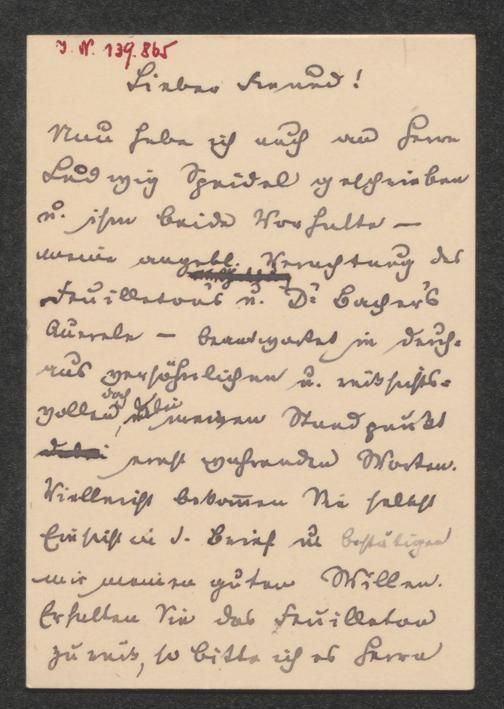 J. N. 139.865
Lieber Freund!
Nun habe ich auch an Herrn
Ludwig Speidel geschrieben
u. ihm beide Vorhalte –
meine angebl. Verachtung des
Feuilleton's u. Dr Bacher's
Querele – beantwortet in durch-
aus versöhnlichen u. rücksichts-
vollen, doch meinen Standpunkt
ernst wahrenden Worten.
Vielleicht bekommen Sie selbst
Einsicht in d. Brief u bestätigen
mir meinen guten Willen.
Erhalten Sie das Feuilleton
zurück, so bitte ich es Herrn